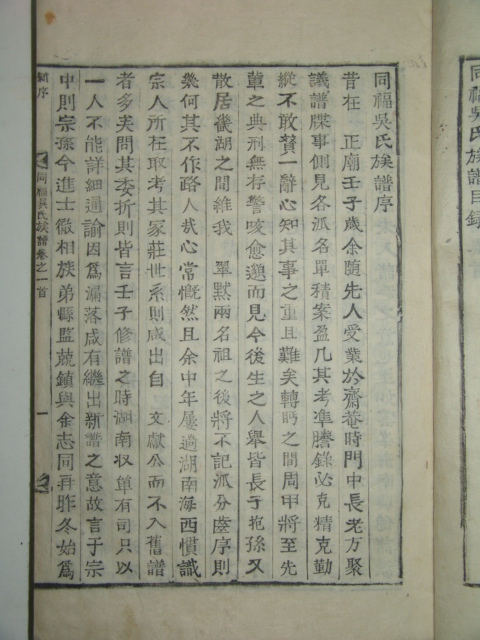 同福吳氏族譜目錄
同福吳氏族譜序
昔在 正廟壬子歲余隨先人受業於齋菴時門中長老方聚
議譜牒事側見各派名單積案盈几其考準謄錄必克精克勤
縱不敢贊一辭心知其事之重且難矣轉眄之間周甲將至先
輩之典刑無存警咳愈邈而見今後生之人舉皆長于抱孫又
散居畿湖之間維我 翠默兩名祖之後將不記派分臺序則
幾何其不作路人㢤心常慨然且余中年屢過湖南海西慣識
宗人所在取考其家莊世系則咸出自 文獻公而不入舊譜
者多矣問其委折則皆言壬子修譜之時湖南収單有司只以
一人不能詳細通諭因爲漏落咸有繼出新譜之意故言于宗
中則宗孫今進士徽相族弟縣監兢鎮與余志同再昨冬始爲
譜序
同福吳氏族譜卷之一首
一